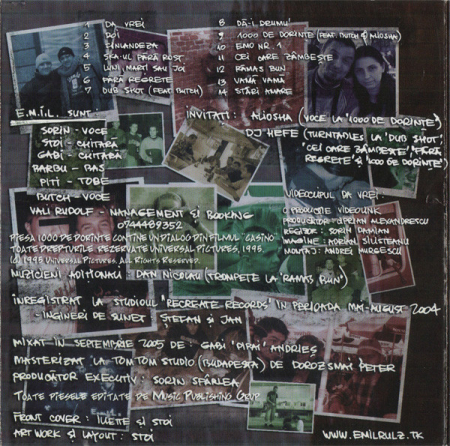 1 DA VREI
2 DOI
3 FINLANDEZA
4 SKA-UL FĂRĂ ROST
5 LUNI, MARȚI SAU JOI
6 FĂRĂ REGRETE
7 DUB SHOT (FEAT. BUTCH)
8 DĂ-I DRUMU'
9 1000 DE DORINȚE (FEAT. BUTCH ȘI ALIOSHA)
10 EMO NR. 1
11 CEI CARE ZÂMBEȘTE
12 RĂMAS BUN
13 VAMĂ VAMĂ
14 STĂRI AMARE
E.M.I.L. SUNT:
SORIN - VOCE
STOI - CHITARA
GABI - CHITARA
BARBU - BAS
PITI - TOBE
BUTCH - VOCE
VALI RUDOLF - MANAGEMENT ȘI BOOKING
0744489352
INVITAȚI: ALIOSHA (VOCE LA "1000 DE DORINȚE")
DJ HEFE (TURNTABLES LA "DUB SHOT",
"CEI CARE ZÂMBEȘTE", "FĂRĂ
REGRETE" ȘI "1000 DE DORINȚE")
PIESA 1000 DE DORINTE CONTINE UN DIALOG DIN FILMUL "CASINO"
TOATE DREPTURILE REZERVATE UNIVERSAL PICTURES, 1995.
(C) 1995 UNIVERSAL PICTURES. ALL RIGHTS RESERVED.
VIDEOCLIPUL DA VREI:
O PRODUCTIE VIDEOLINK
PRODUCĂTOR: CIPRIAN ALEXANDRESCU
REGIZOR: SORIN DAMIAN
IMAGINE: ADRIAN SILISTEANU
MONTAJ: ANDREI MURGESCU
MUZICIENI ADITIONALI: DAN NICOLAU (TROMPETE LA "RAMAS BUN")
INREGISTRAT LA STUDIOUL "RECREATE RECORDS" IN PERIOADA MAI-AUGUST 2004
- INGINERI DE SUNET: ȘTEFAN ȘI JAN
MIXAT IN SEPTEMBRIE 2005 DE: GABI "PIRAI" ANDRIEȘ
MASTERIZAT LA TOM TOM STUDIO (BUDAPESTA) DE DOROZSMAI PETER
PRODUCĂTOR EXECUTIV: SORIN SFÂRLEA
TOATE PIESELE EDITATE DE MUSIC PUBLISHING GRUP
FRONT COVER: IUETTE ȘI STOI
ART WORK ȘI LAYOUT: STOI
WWW.EMILRULZ.TK